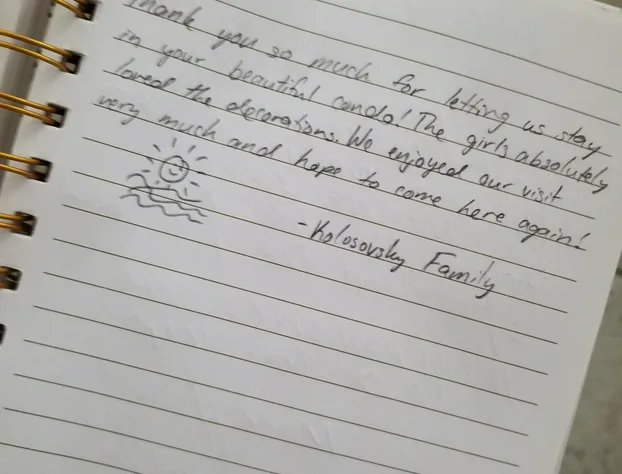 Thank you so much for letting us stay
in your beautiful condo! The girls absolutely
loved the decorations. We enjoyed our visit
very much and hope to come here again!
- Kolosovsky Family